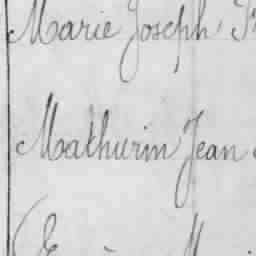 Marie Joseph
Mathurin Jean